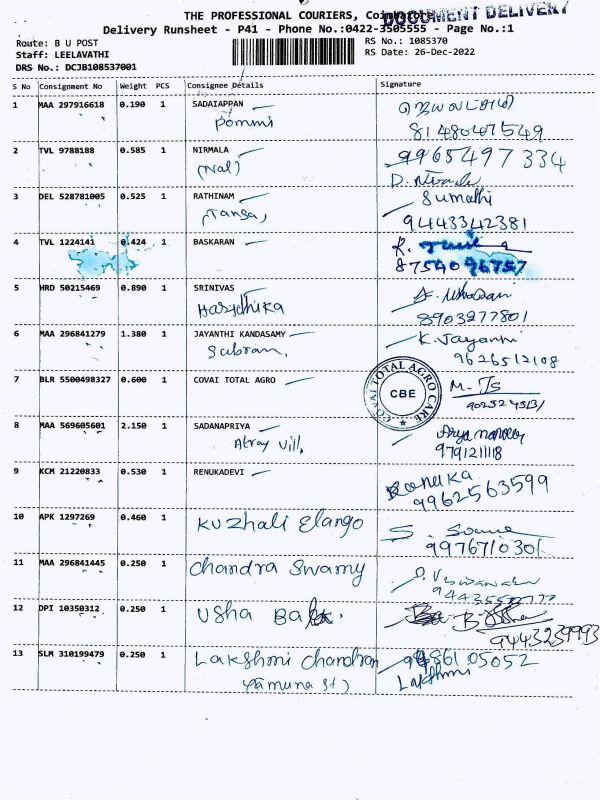 THE PROFESSIONAL COURIERS, Coimbatore
DOCUMENT DELIVERY
Delivery Runsheet - P41 - Phone No.:0422-3505555 - Page No.:1
Route: B U POST
RS No.: 1085370
Staff: LEELAVATHI
RS Date: 26-Dec-2022
DRS No.: DCJB108537001
S No Consignment No Weight PCS Consignee Details Signature
1 MAA 297916618 0.190 1 SADAIAPPAN
Pommi
8148047549
2 TVL 9788188 0.585 1 NIRMALA 9965497334
(Nal)
3 DEL 528781005 0.525 1 RATHINAM Sumathi
(Tansa,
9443342381
4 TVL 1224141 0.424 1 BASKARAN
8754096757
5 HRD 50215469 0.890 1 SRINIVAS
Harydhika
8903277801
6 MAA 296841279 1.380 1 JAYANTHI KANDASAMY K. Jayanthi
Subram,
9626512108
7 BLR 5500498327 0.600 1 COVAI TOTAL AGRO
COVAI TOTAL AGRO CARE
CBE
8 MAA 569605601 2.150 1 SADANAPRIYA
Vill,
9791211118
9 KCM 21220833 0.530 1 RENUKADEVI Renuka
9962563599
10 APK 1297269 0.460 1 Kuzhali Elango
9976710301
11 MAA 296841445 0.250 1 Chandra Swamy
12 DPI 10350312 0.250 1 Usha
9443239993
13 SLM 310199479 0.250 1 Lakshmi Chandran 9486105052
Yamuna St) Lakshmi